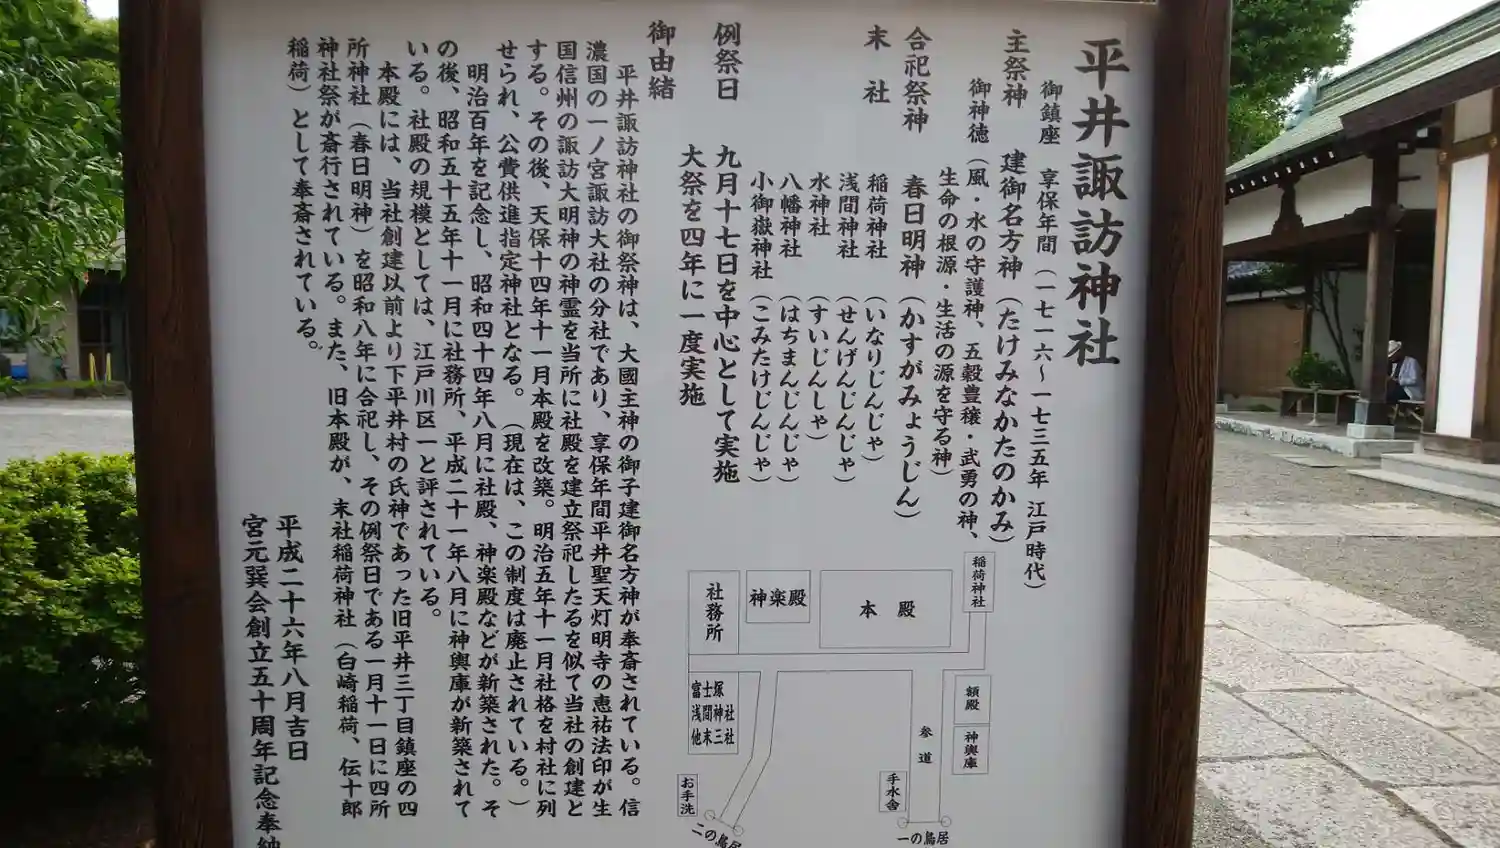 平井諏訪神社
御鎮座 享保年間(一七一六～一七三五年 江戸時代)
主祭神 建御名方神(たけみなかたのかみ)
御神徳(風・水の守護神、五穀豊穣・武勇の神、
生命の根源・生活の源を守る神)
合祀祭神 春日明神(かすがみょうじん)
末社 稲荷神社(いなりじんじゃ)
浅間神社(せんげんじんじゃ)
水神社(すいじんしゃ)
八幡神社(はちまんじんじゃ)
小御嶽神社(こみたけじんじゃ)
例祭日 九月十七日を中心として実施
大祭を四年に一度実施
御由緒
平井諏訪神社の御祭神は、大國主神の御子建御名方神が奉斎されている。信
濃国の一ノ宮諏訪大社の分社であり、享保年間平井聖天灯明寺の恵祐法印が生
国信州の諏訪大明神の神霊を当所に社殿を建立祭祀したるを似て当社の創建と
する。その後、天保十四年十一月本殿を改築。明治五年十一月社格を村社に列
せられ、公費供進指定神社となる。(現在は、この制度は廃止されている。)
明治百年を記念し、昭和四十四年八月に社殿、神楽殿などが新築された。そ
の後、昭和五十五年十一月に社務所、平成二十一年八月に神輿庫が新築されて
いる。社殿の規模としては、江戸川区一と評されている。
本殿には、当社創建以前より下平井村の氏神であった旧平井三丁目鎮座の四
所神社(春日明神)を昭和八年に合祀し、その例祭日である一月十一日に四所
神社祭が斎行されている。また、旧本殿が、末社稲荷神社(白崎稲荷、伝十郎
稲荷)として奉斎されている。
平成二十六年八月吉日
宮元巽会創立五十周年記念奉納
稲荷神社
本殿
神楽殿
社務所
額殿
神輿庫
参道
手水舎
一の鳥居
富士塚
浅間神社
他末三社
お手洗
二の鳥居